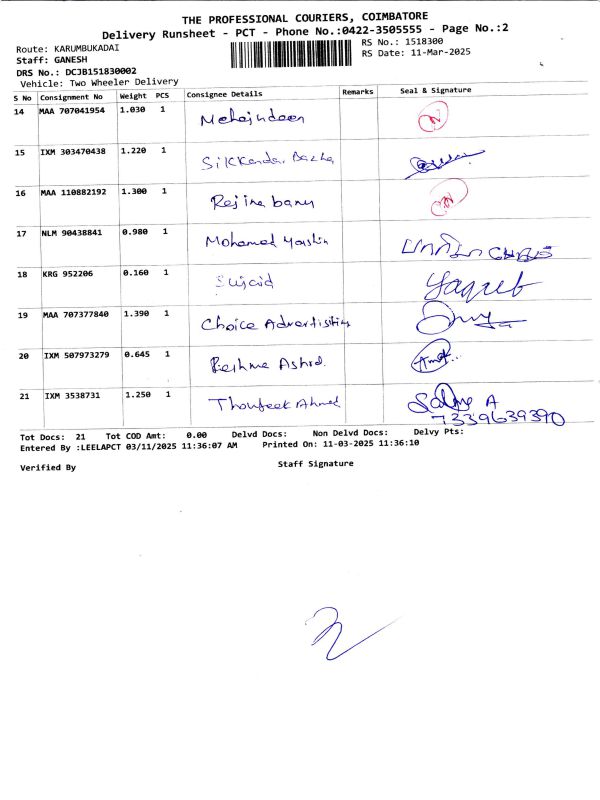 THE PROFESSIONAL COURIERS, COIMBATORE
Delivery Runsheet - PCT - Phone No.:0422-3505555 - Page No.:2
Route: KARUMBUKADAI
RS No.: 1518300
Staff: GANESH
RS Date: 11-Mar-2025
DRS No.: DCJB151830002
Vehicle: Two Wheeler Delivery
S No Consignment No Weight PCS Consignee Details Remarks Seal & Signature
14 MAA 707041954 1.030 1
15 IXM 303470438 1.220 1 Sikkandar
16 MAA 110882192 1.300 1 Rejina banu
17 NLM 90438841 0.980 1 Mohamed
18 KRG 952206 0.160 1 Yaqueb
19 MAA 707377840 1.390 1 Choice
20 IXM 507973279 0.645 1
21 IXM 3538731 1.250 1 Thoufeek Ahmed A
7339639390
Tot Docs: 21 Tot COD Amt: 0.00 Delvd Docs: Non Delvd Docs: Delvy Pts:
Entered By :LEELAPCT 03/11/2025 11:36:07 AM Printed On: 11-03-2025 11:36:10
Verified By Staff Signature